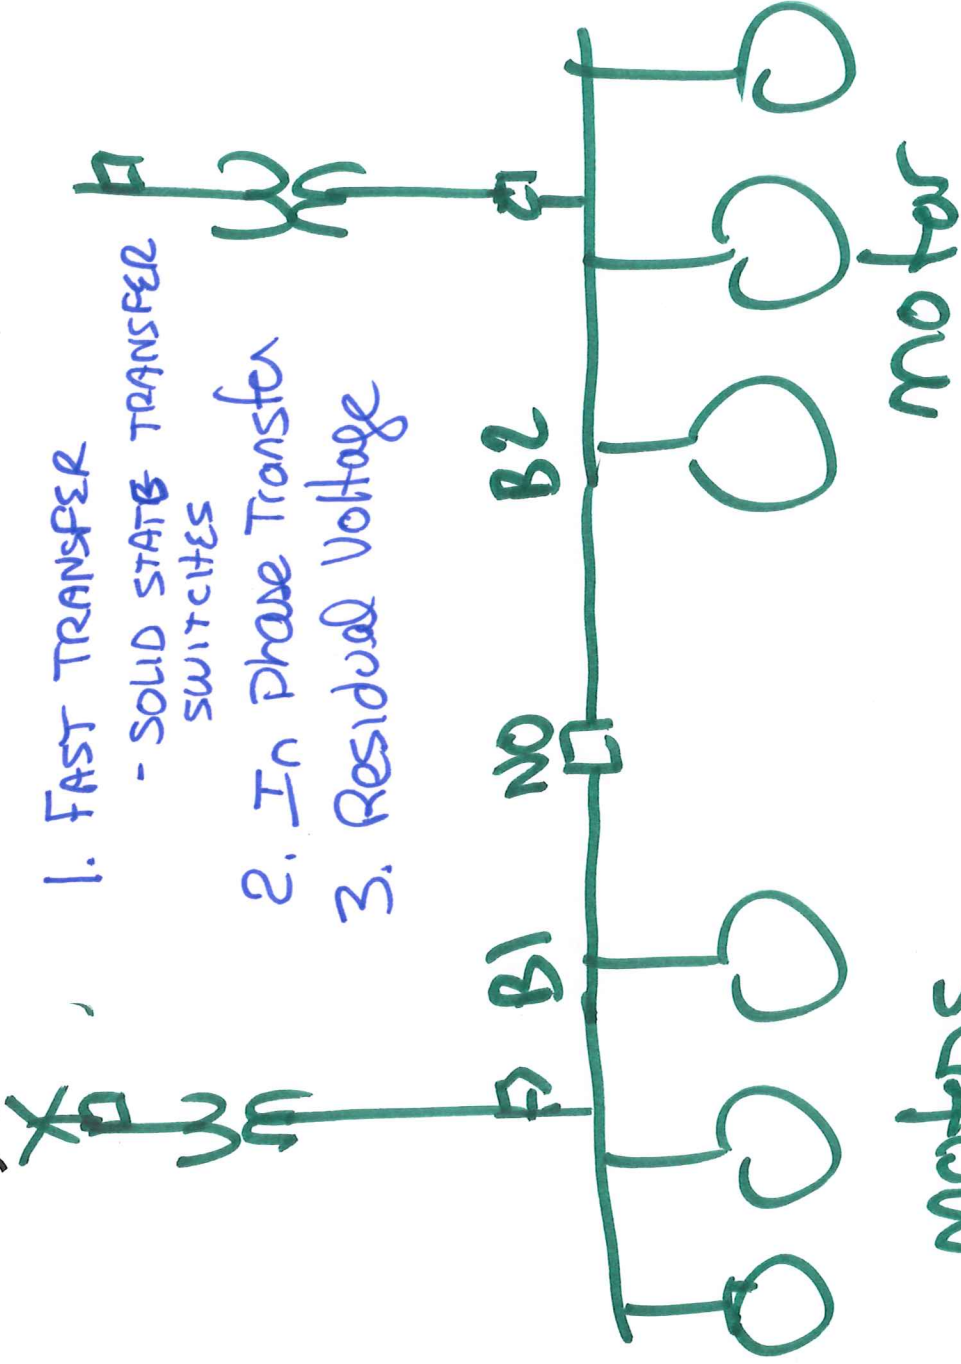 1. FAST TRANSFER
- SOLID STATE TRANSFER
SWITCHES
2. In phase Transfer
3. Residual Voltage
B1
NO
B2
motor